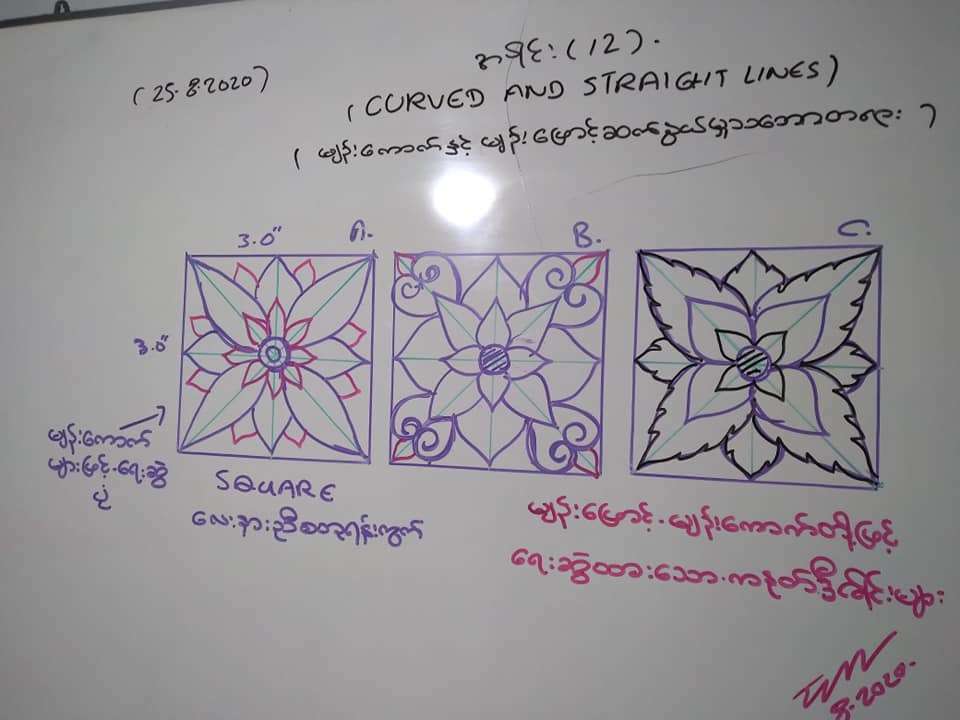 (25.8.2020)
အရင်း (12).
(CURVED AND STRAIGHT LINES)
(မျဉ်းကောက်နှင့် မျဉ်းဖြောင့်ဆက်နွယ်မှုသဘောတရား)
3.0" A. B. C.
3.0"
မျဉ်းကောက်
များဖြင့်ရေးဆွဲ
ပုံ
SQUARE
လေးနားညီစတုရန်းကွက်
မျဉ်းဖြောင့်.မျဉ်းကောက်တို့ဖြင့်
ရေးဆွဲထားသော.ကနုတ်ဒီဇိုင်းများ
8.2020.